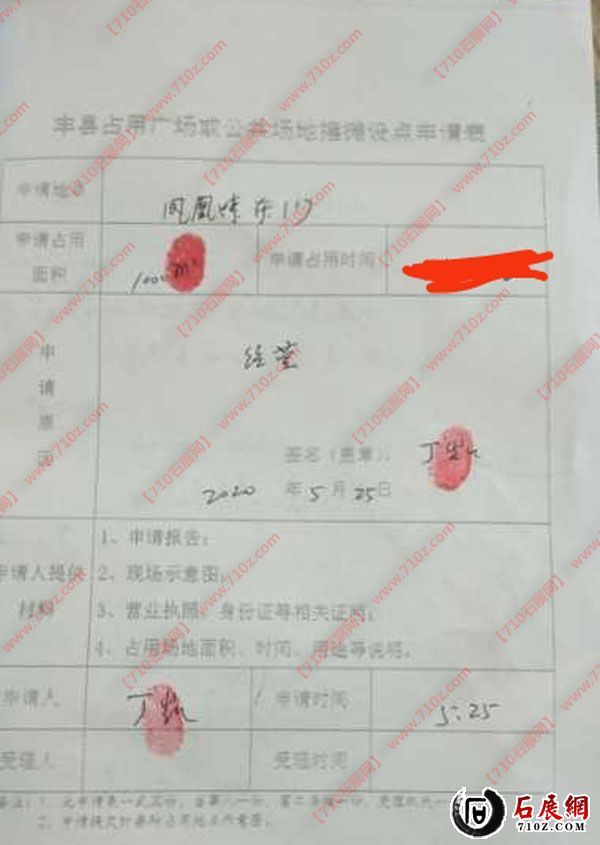 丰县占用广场或公共场地摆摊设点申请表
申请地点
凤凰城东门
申请占用面积
1000m²
申请占用时间
申请原因
经营
签名（盖章）：
2020年5月25日
申请人提供材料
1、申请报告；
2、现场示意图；
3、营业执照、身份证等相关证明；
4、占用场地面积、时间、用途等说明。
申请人
申请时间
5.25
受理人
受理时间
【710石展网】www.710z.com
石展網
710Z.COM